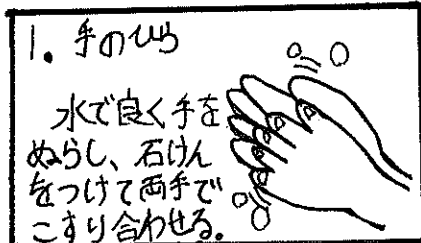 1. 手のひら
水で良く手を
ぬらし、石けん
をつけて両手で
こすり合わせる。